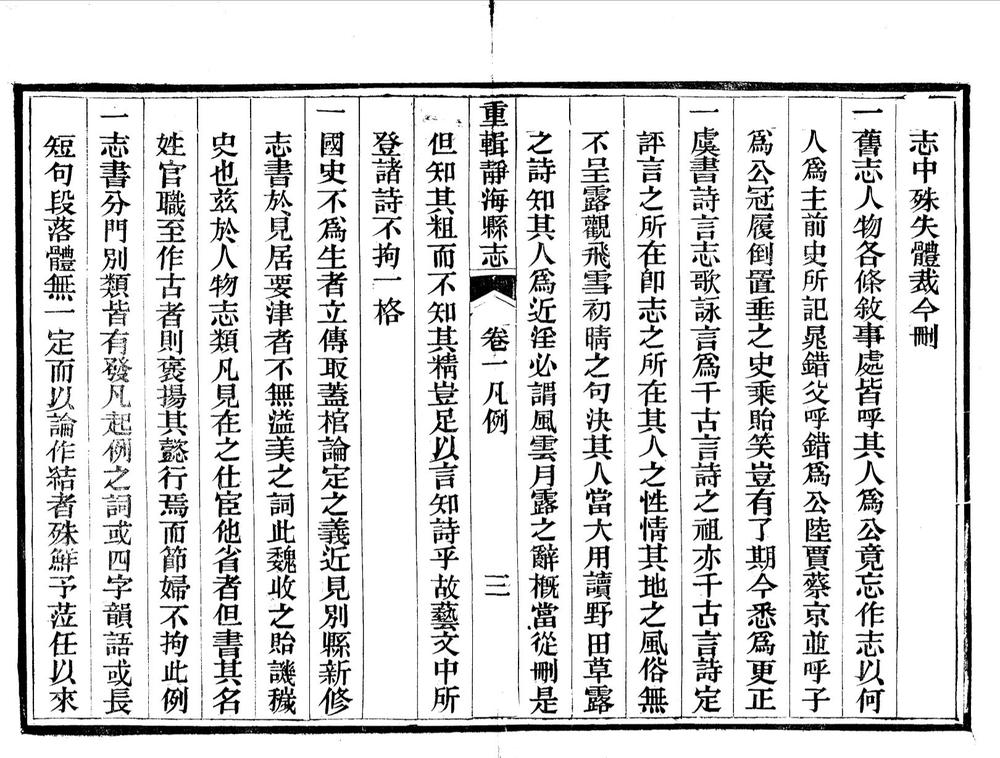 志中殊失體裁今刪
一舊志人物各條敘事處皆呼其人爲公竟忘作志以何
人爲主前史所記晁錯父呼錯爲公陸賈蔡京並呼子
爲公冠履倒置垂之史乘貽笑豈有了期今悉爲更正
一虞書詩言志歌詠言爲千古言詩之祖亦千古言詩定
評言之所在卽志之所在其人之性情其地之風俗無
不呈露觀飛雪初晴之句決其人當大用讀野田草露
之詩知其人爲近淫必謂風雲月露之辭槪當從刪是
重輯靜海縣志 卷一凡例 三
但知其粗而不知其精豈足以言知詩乎故藝文中所
登諸詩不拘一格
一國史不爲生者立傳取蓋棺論定之義近見別縣新修
志書於見居要津者不無溢美之詞此魏收之貽譏穢
史也茲於人物志類凡見在之仕宦他省者但書其名
姓官職至作古者則褒揚其懿行焉而節婦不拘此例
一志書分門別類皆有發凡起例之詞或四字韻語或長
短句段落體無一定而以論作結者殊鮮予蒞任以來